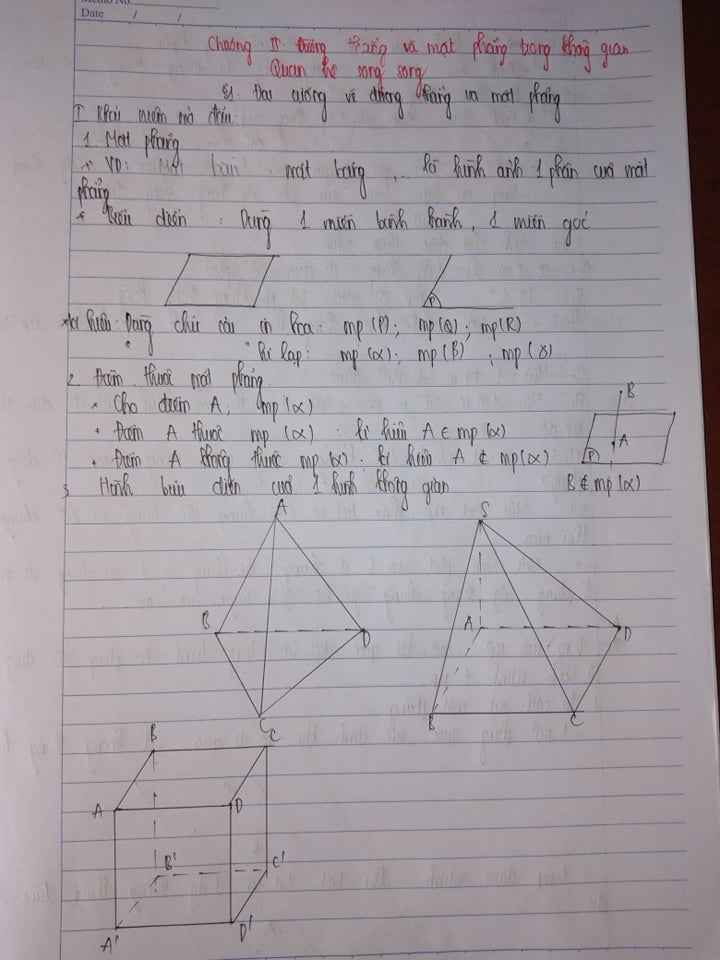 Memo No.
Date / /
Chương II Đường thẳng và mặt phẳng trong không gian
Quan hệ song song
§1. Đại cương về đường thẳng và mặt phẳng
I Khái niệm mở đầu
1 Mặt phẳng
+ VD: Mặt bàn, mặt bảng, ... là hình ảnh 1 phần của mặt
phẳng
+ Biểu diễn: Dùng 1 miền bình hành, 1 miền góc
P
+ Kí hiệu: Dùng chữ cái in hoa: mp (P); mp(Q); mp(R)
Hi Lạp: mp (α); mp (β); mp (γ)
2. Điểm thuộc mặt phẳng
• Cho điểm A, mp (α)
• Điểm A thuộc mp (α): kí hiệu A ∈ mp (α)
• Điểm A không thuộc mp (α). kí hiệu A ∉ mp(α)
B
A
P
B ∉ mp (α)
3 Hình biểu diễn của 1 hình không gian
A
B
D
C
S
A
D
B
C
B
C
A
D
B'
C'
A'
D'